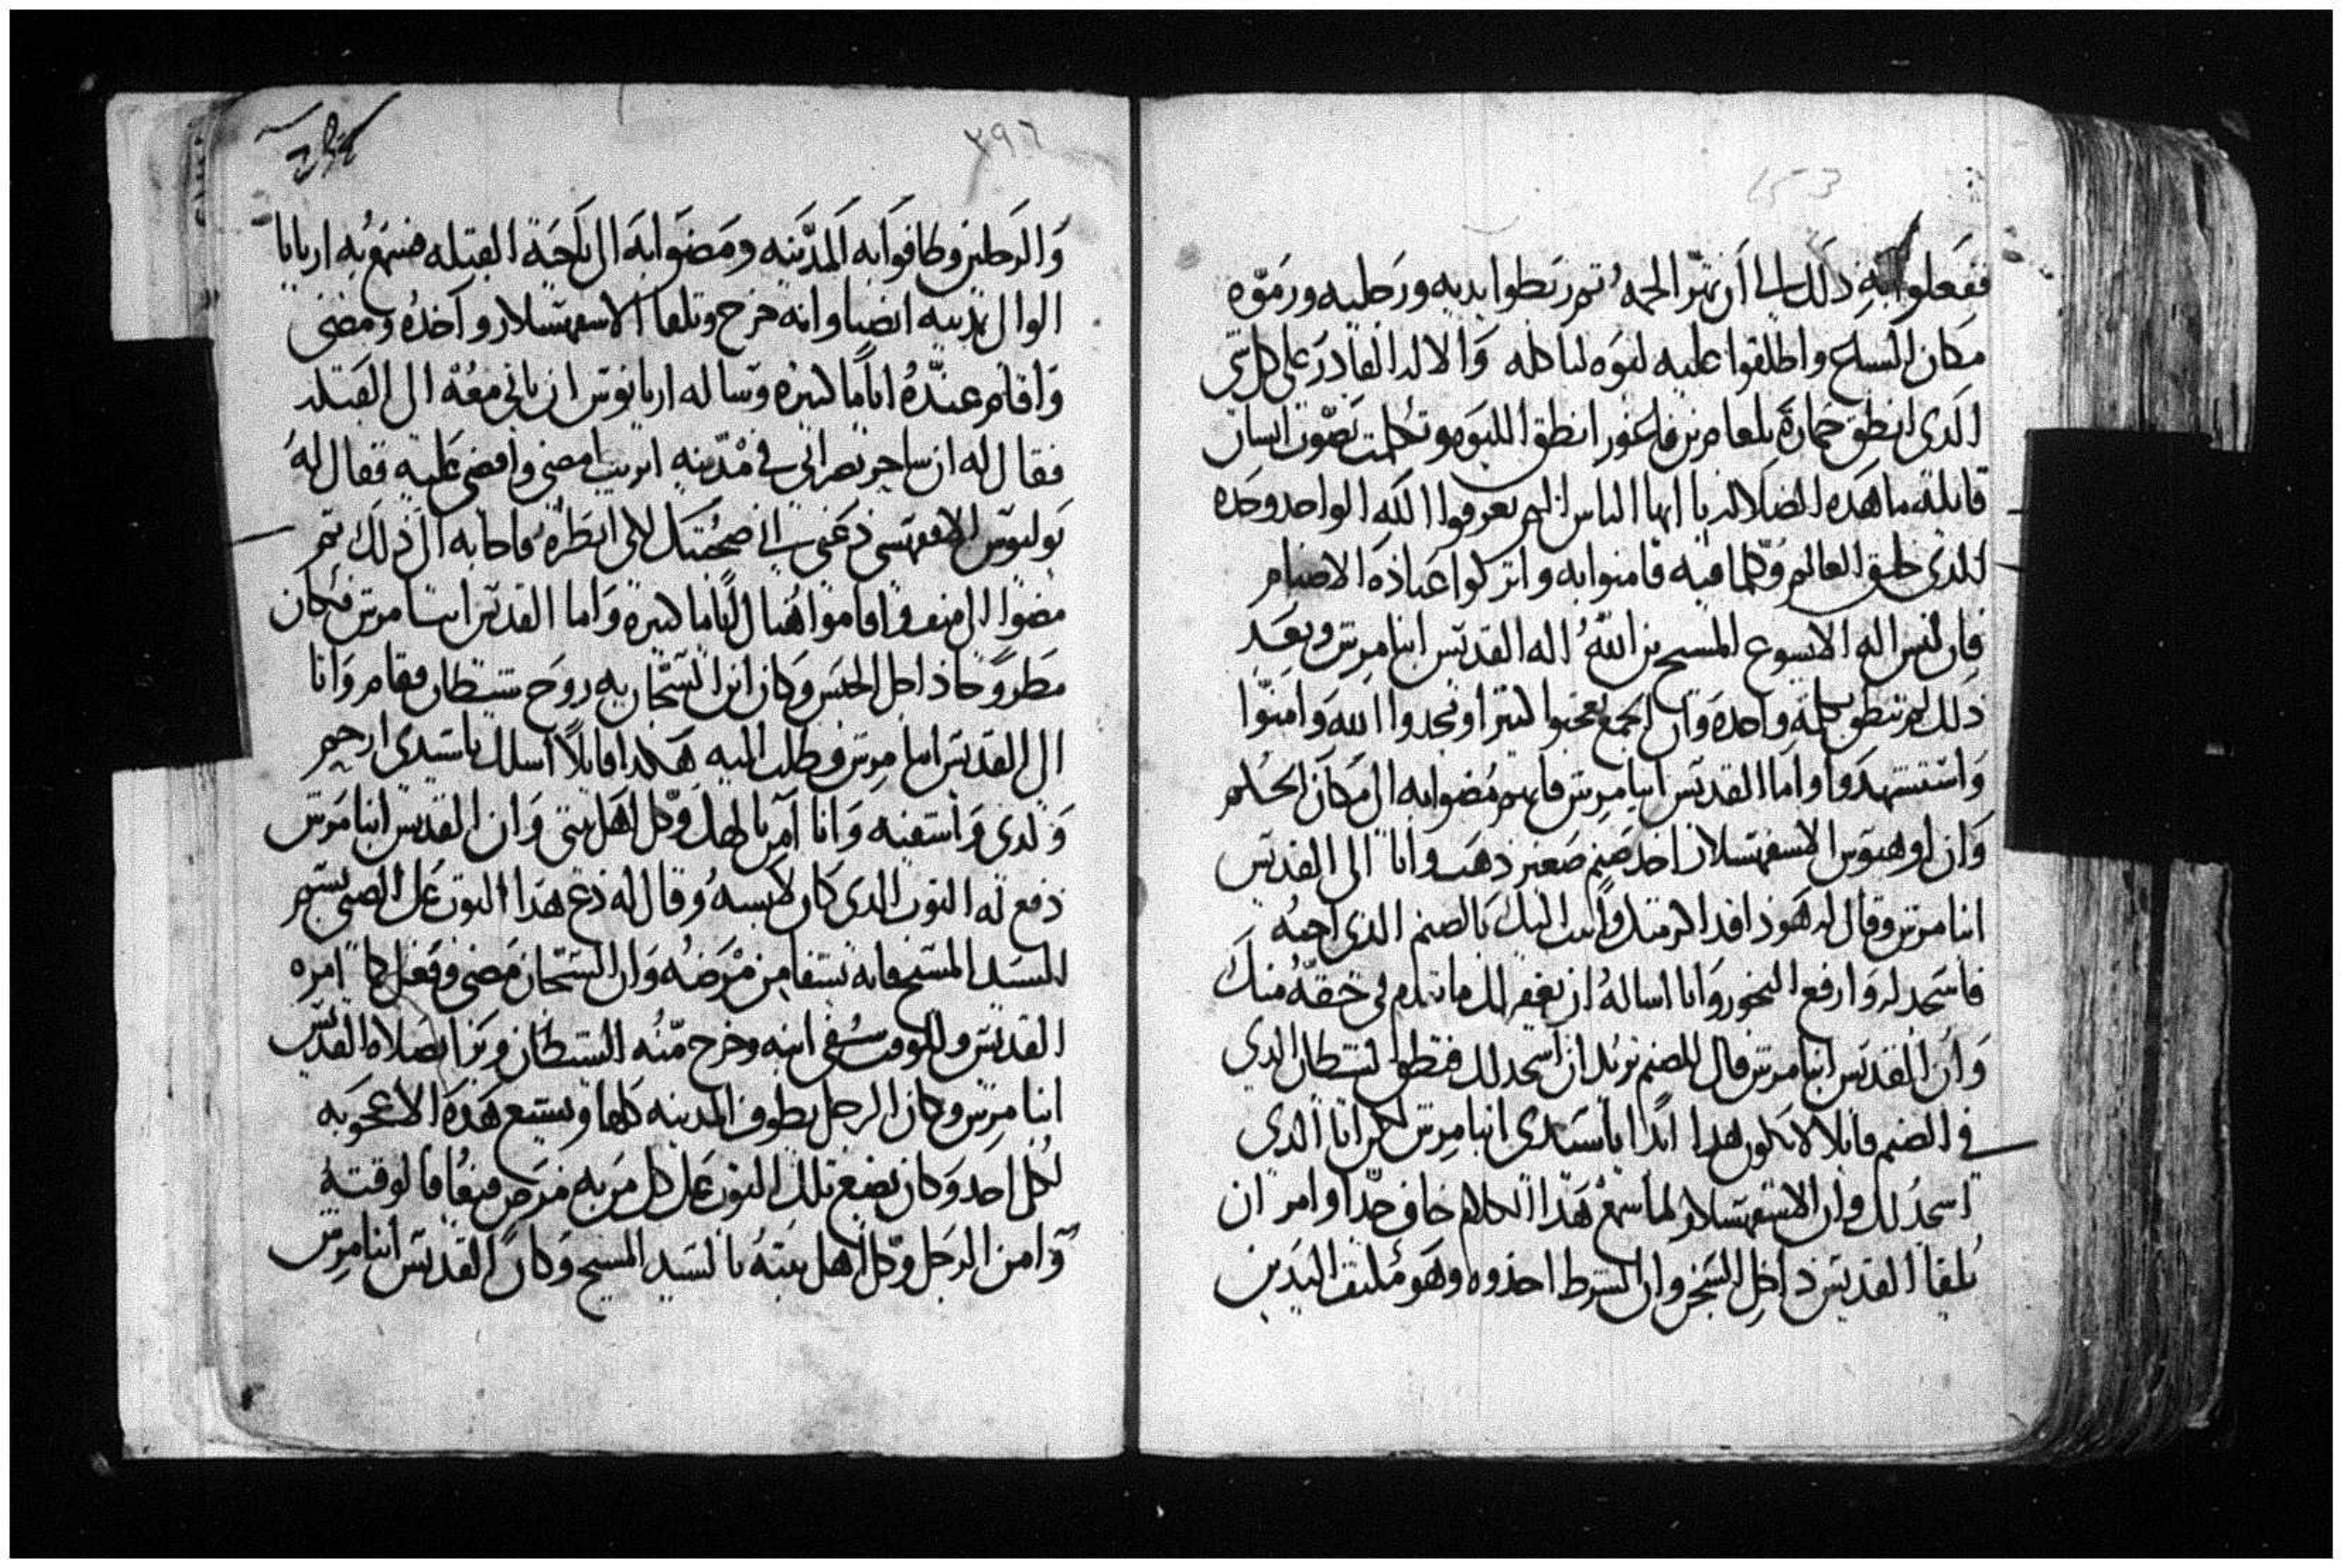 ففعلوا به ذلك الي ان تهرا لحمه ثم ربطوا يديه ورجليه ورموه
مكان السباع واطلقوا عليه لبوه لتاكله والاله القادر على كل شي
الدي انطق حمارة بلعام بن فاغور انطق اللبوه وتكلمت بصوت انسان
قايلة ما هده الضلاله يا ايها الناس الم تعرفوا الله الواحد وحده
الدي خلق العالم وكلما فيه فامنوا به واتركوا عبادة الاصنام
فان ليس اله الا يسوع المسيح بن الله اله القديس انبا مرتن وبعد
ذلك لم تنطق بكلمة واحدة وان الجمع تعجبوا كتيرا ومجدوا الله وامنوا
واستشهدوا واما القديس انبا مرتن فانهم مضوا به الى مكان الحكم
وان اوهيوس الاسفهسلار اخد صنم صغير ذهب واتا الى القديس
انبا مرتن وقال له هوذا قد اكرمتك واتيت اليك بالصنم الذي احبه
فاسجد له وارفع البخور وانا اساله ان يغفر لك ما تقدم في حقه منك
وان القديس انبا مرتن قال للصنم تريد ان اسجد لك فنطق الشيطان الدي
في الصنم قايلا لا يكون هدا ابدا يا سيدي انبا مرتن لكن انا الدي
اسجد لك وان الاسفهسلار لما سمع هدا الكلام خاف جدا وامر ان
يلقا القديس داخل السجن وان الشرط اخذوه وهو مكتف اليدين
٢٩٦
والرجلين وطافوا به المدينه ومضوا به الى ناحية القبله فسمع به اريانا
الوالى بمدينه انصنا وانه خرج وتلقا الاسفهسلار واخده ومضى
واقام عنده اياما كتيره وساله اريانوس ان ياتي معه الى القبله
فقال له ان ساحر نصراني في مدينه اتريب امضي واقضي عليه فقال له
بوليوس الاقفهسي دعني اتي صحبتك لكي انظره فاجابه الى ذلك ثم
مضوا الى منف واقاموا هناك اياما كتيرة واما القديس انبا مرتن فكان
مطروحا داخل الحبس وكان ابن السجان به روح شيطان فقام واتا
الى القديس انبا مرتن وطلب اليه هكدا قايلا اسلك يا سيدي ارحم
ولدي واشفيه وانا امن بالهك وكل اهل بيتي وان القديس انبا مرتن
دفع له التوب الدي كان لابسه وقال له دع هدا التوب على الصبي بسم
السيد المسيح فانه يشفا من مرضه وان السجان مضى وفعل كما امره
القديس وللوقت شفي ابنه وخرج منه الشيطان وبرا بصلاة القديس
انبا مرتن وكان الرجل يطوف المدينه كلها ويشيع هده الاعجوبه
لكل احد وكان يضع تلك التوب على كل من به مرض فيعافا لوقته
وامن الرجل وكل اهل بيته بالسيد المسيح وكان القديس انبا مرتن